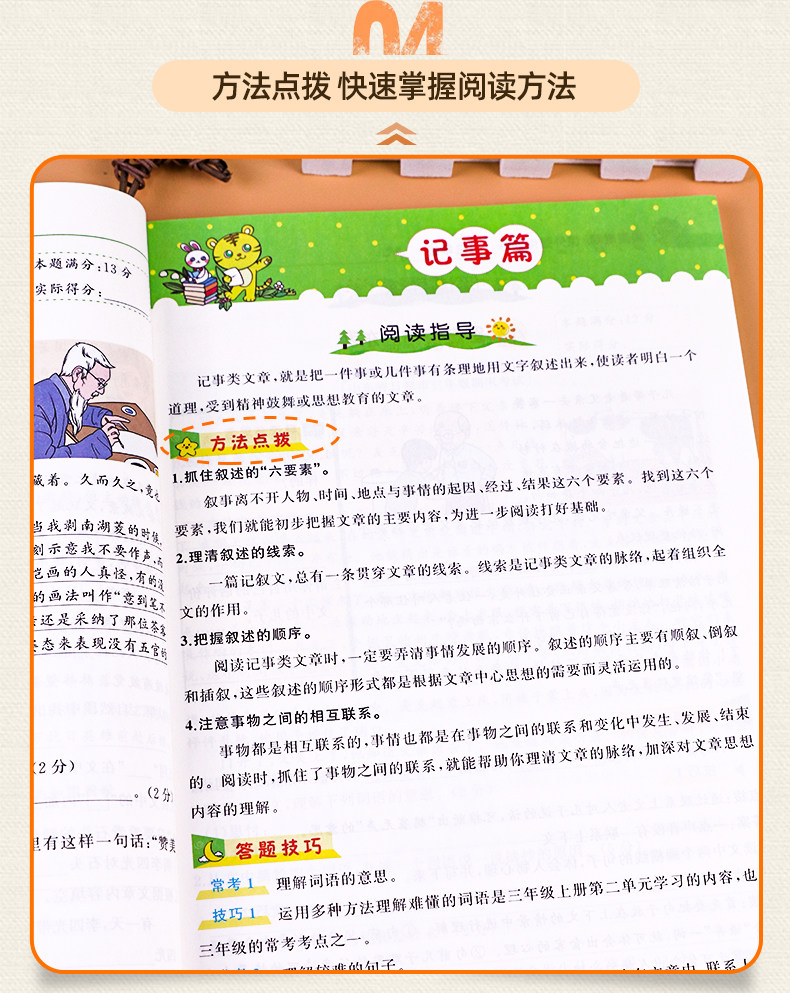 04
方法点拨 快速掌握阅读方法
本题满分:13分
实际得分:
藏着。久而久之,竟也
当我剥南湖菱的时候,
刻示意我不要作声,而
画的人真怪,有的连
的画法叫作“意到笔不
还是采纳了那位茶客
姿态来表现没有五官的
(2分)
。(2分)
里有这样一句话:“赞美
记事篇
阅读指导
记事类文章,就是把一件事或几件事有条理地用文字叙述出来,使读者明白一个
道理,受到精神鼓舞或思想教育的文章。
方法点拨
1.抓住叙述的“六要素”。
叙事离不开人物、时间、地点与事情的起因、经过、结果这六个要素。找到这六个
要素,我们就能初步把握文章的主要内容,为进一步阅读打好基础。
2.理清叙述的线索。
一篇记叙文,总有一条贯穿文章的线索。线索是记事类文章的脉络,起着组织全
文的作用。
3.把握叙述的顺序。
阅读记事类文章时,一定要弄清事情发展的顺序。叙述的顺序主要有顺叙、倒叙
和插叙,这些叙述的顺序形式都是根据文章中心思想的需要而灵活运用的。
4.注意事物之间的相互联系。
事物都是相互联系的,事情也都是在事物之间的联系和变化中发生、发展、结束
的。阅读时,抓住了事物之间的联系,就能帮助你理清文章的脉络,加深对文章思想
内容的理解。
答题技巧
常考1 理解词语的意思。
技巧1 运用多种方法理解难懂的词语是三年级上册第二单元学习的内容,也
三年级的常考考点之一。
理解较难的句子。